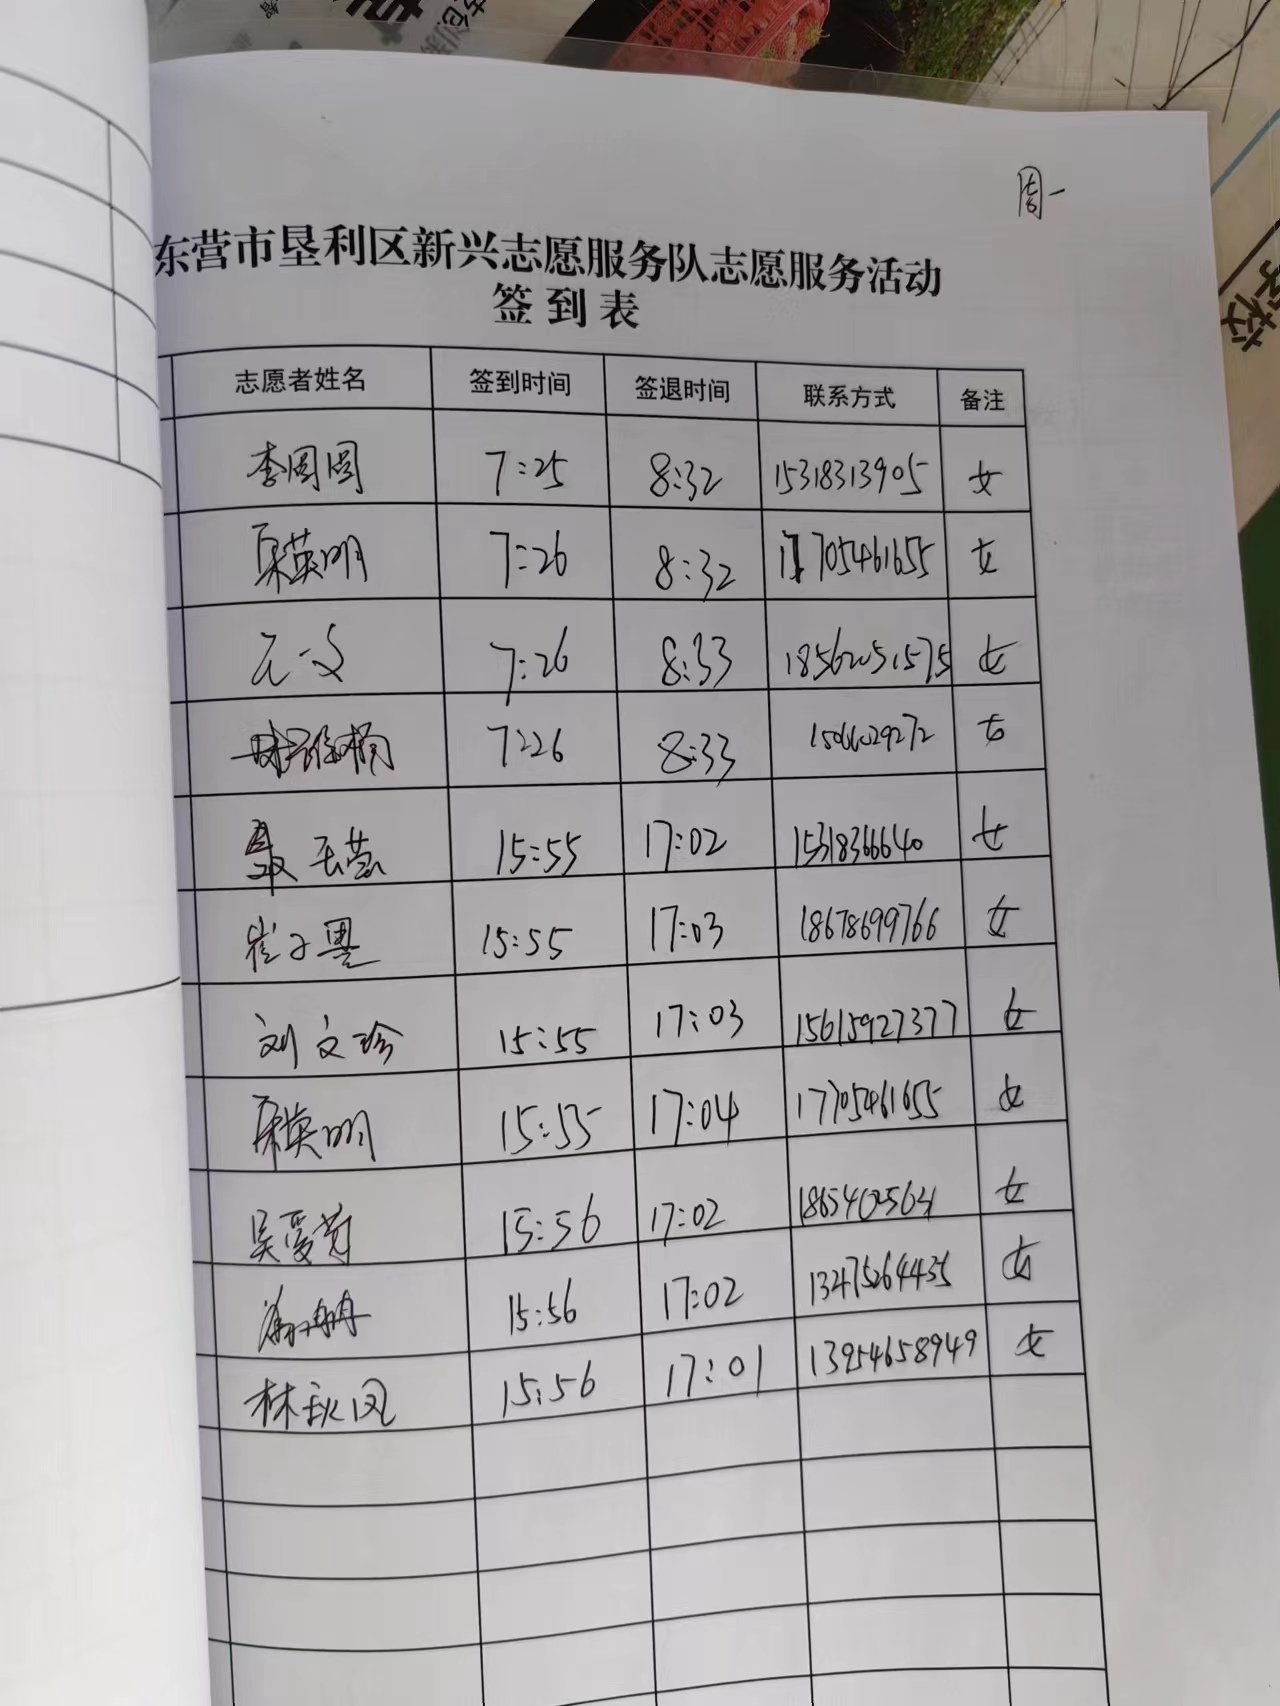 周一
东营市垦利区新兴志愿服务队志愿服务活动
签到表
志愿者姓名 签到时间 签退时间 联系方式 备注
李圆圆 7:25 8:32 15318313905 女
英明 7:26 8:32 17705461655 女
7:26 8:33 18562051575 女
7:26 8:33 女
聂玉营 15:55 17:02 15318366640 女
崔子墨 15:55 17:03 18678699766 女
刘文珍 15:55 17:03 15615927377 女
英明 15:55 17:04 17705461655 女
吴爱菊 15:56 17:02 女
15:56 17:02 13475264435 女
林秋凤 15:56 17:01 13954658949 女